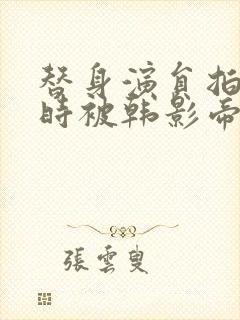 替身演員拍
時被韩影帝
張雲叟